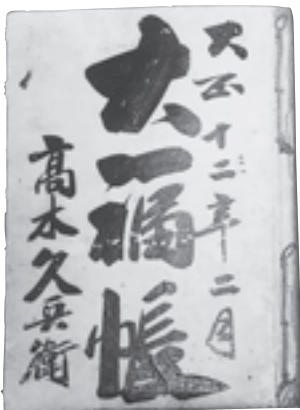 大正十二年二月
大福帳
高木久兵衛